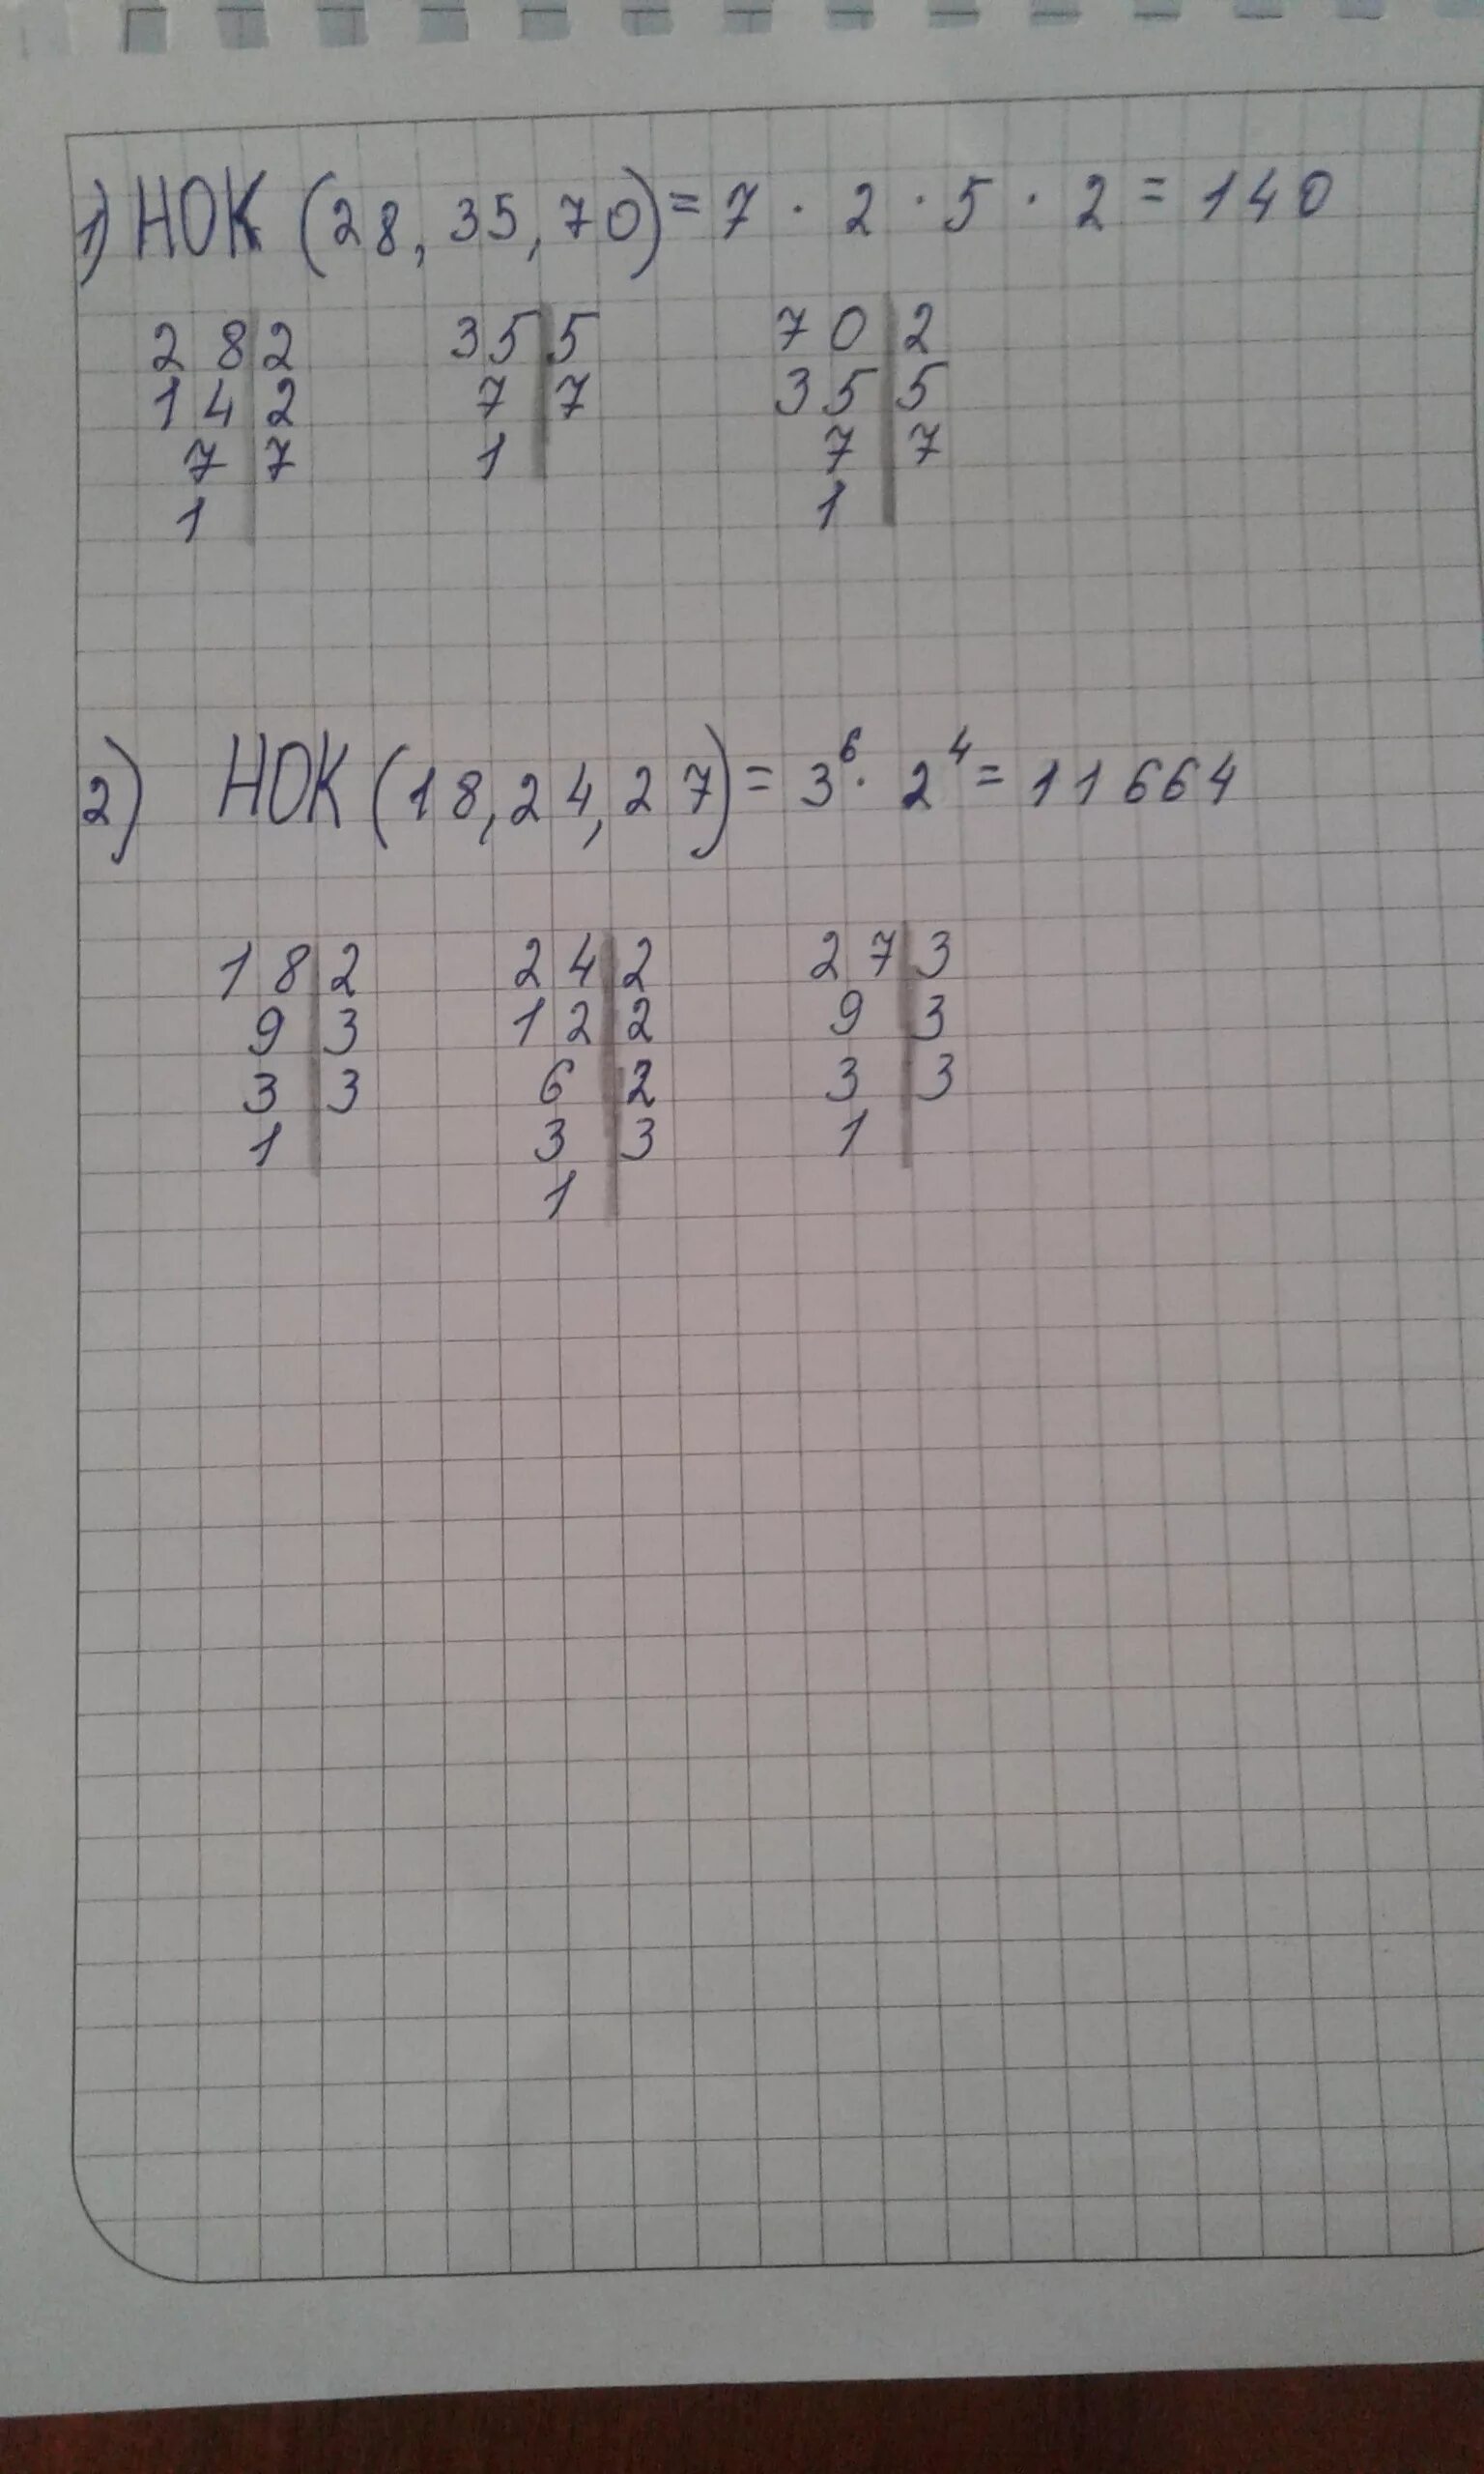 1) НОК (28, 35, 70) = 7 · 2 · 5 · 2 = 140
28 | 2 35 | 5 70 | 2
14 | 2 7 | 7 35 | 5
7 | 7 1 | 7 | 7
1 | 1 |
2) НОК (18, 24, 27) = 3⁶ · 2⁴ = 11664
18 | 2 24 | 2 27 | 3
9 | 3 12 | 2 9 | 3
3 | 3 6 | 2 3 | 3
1 | 3 | 3 1 |
1 |